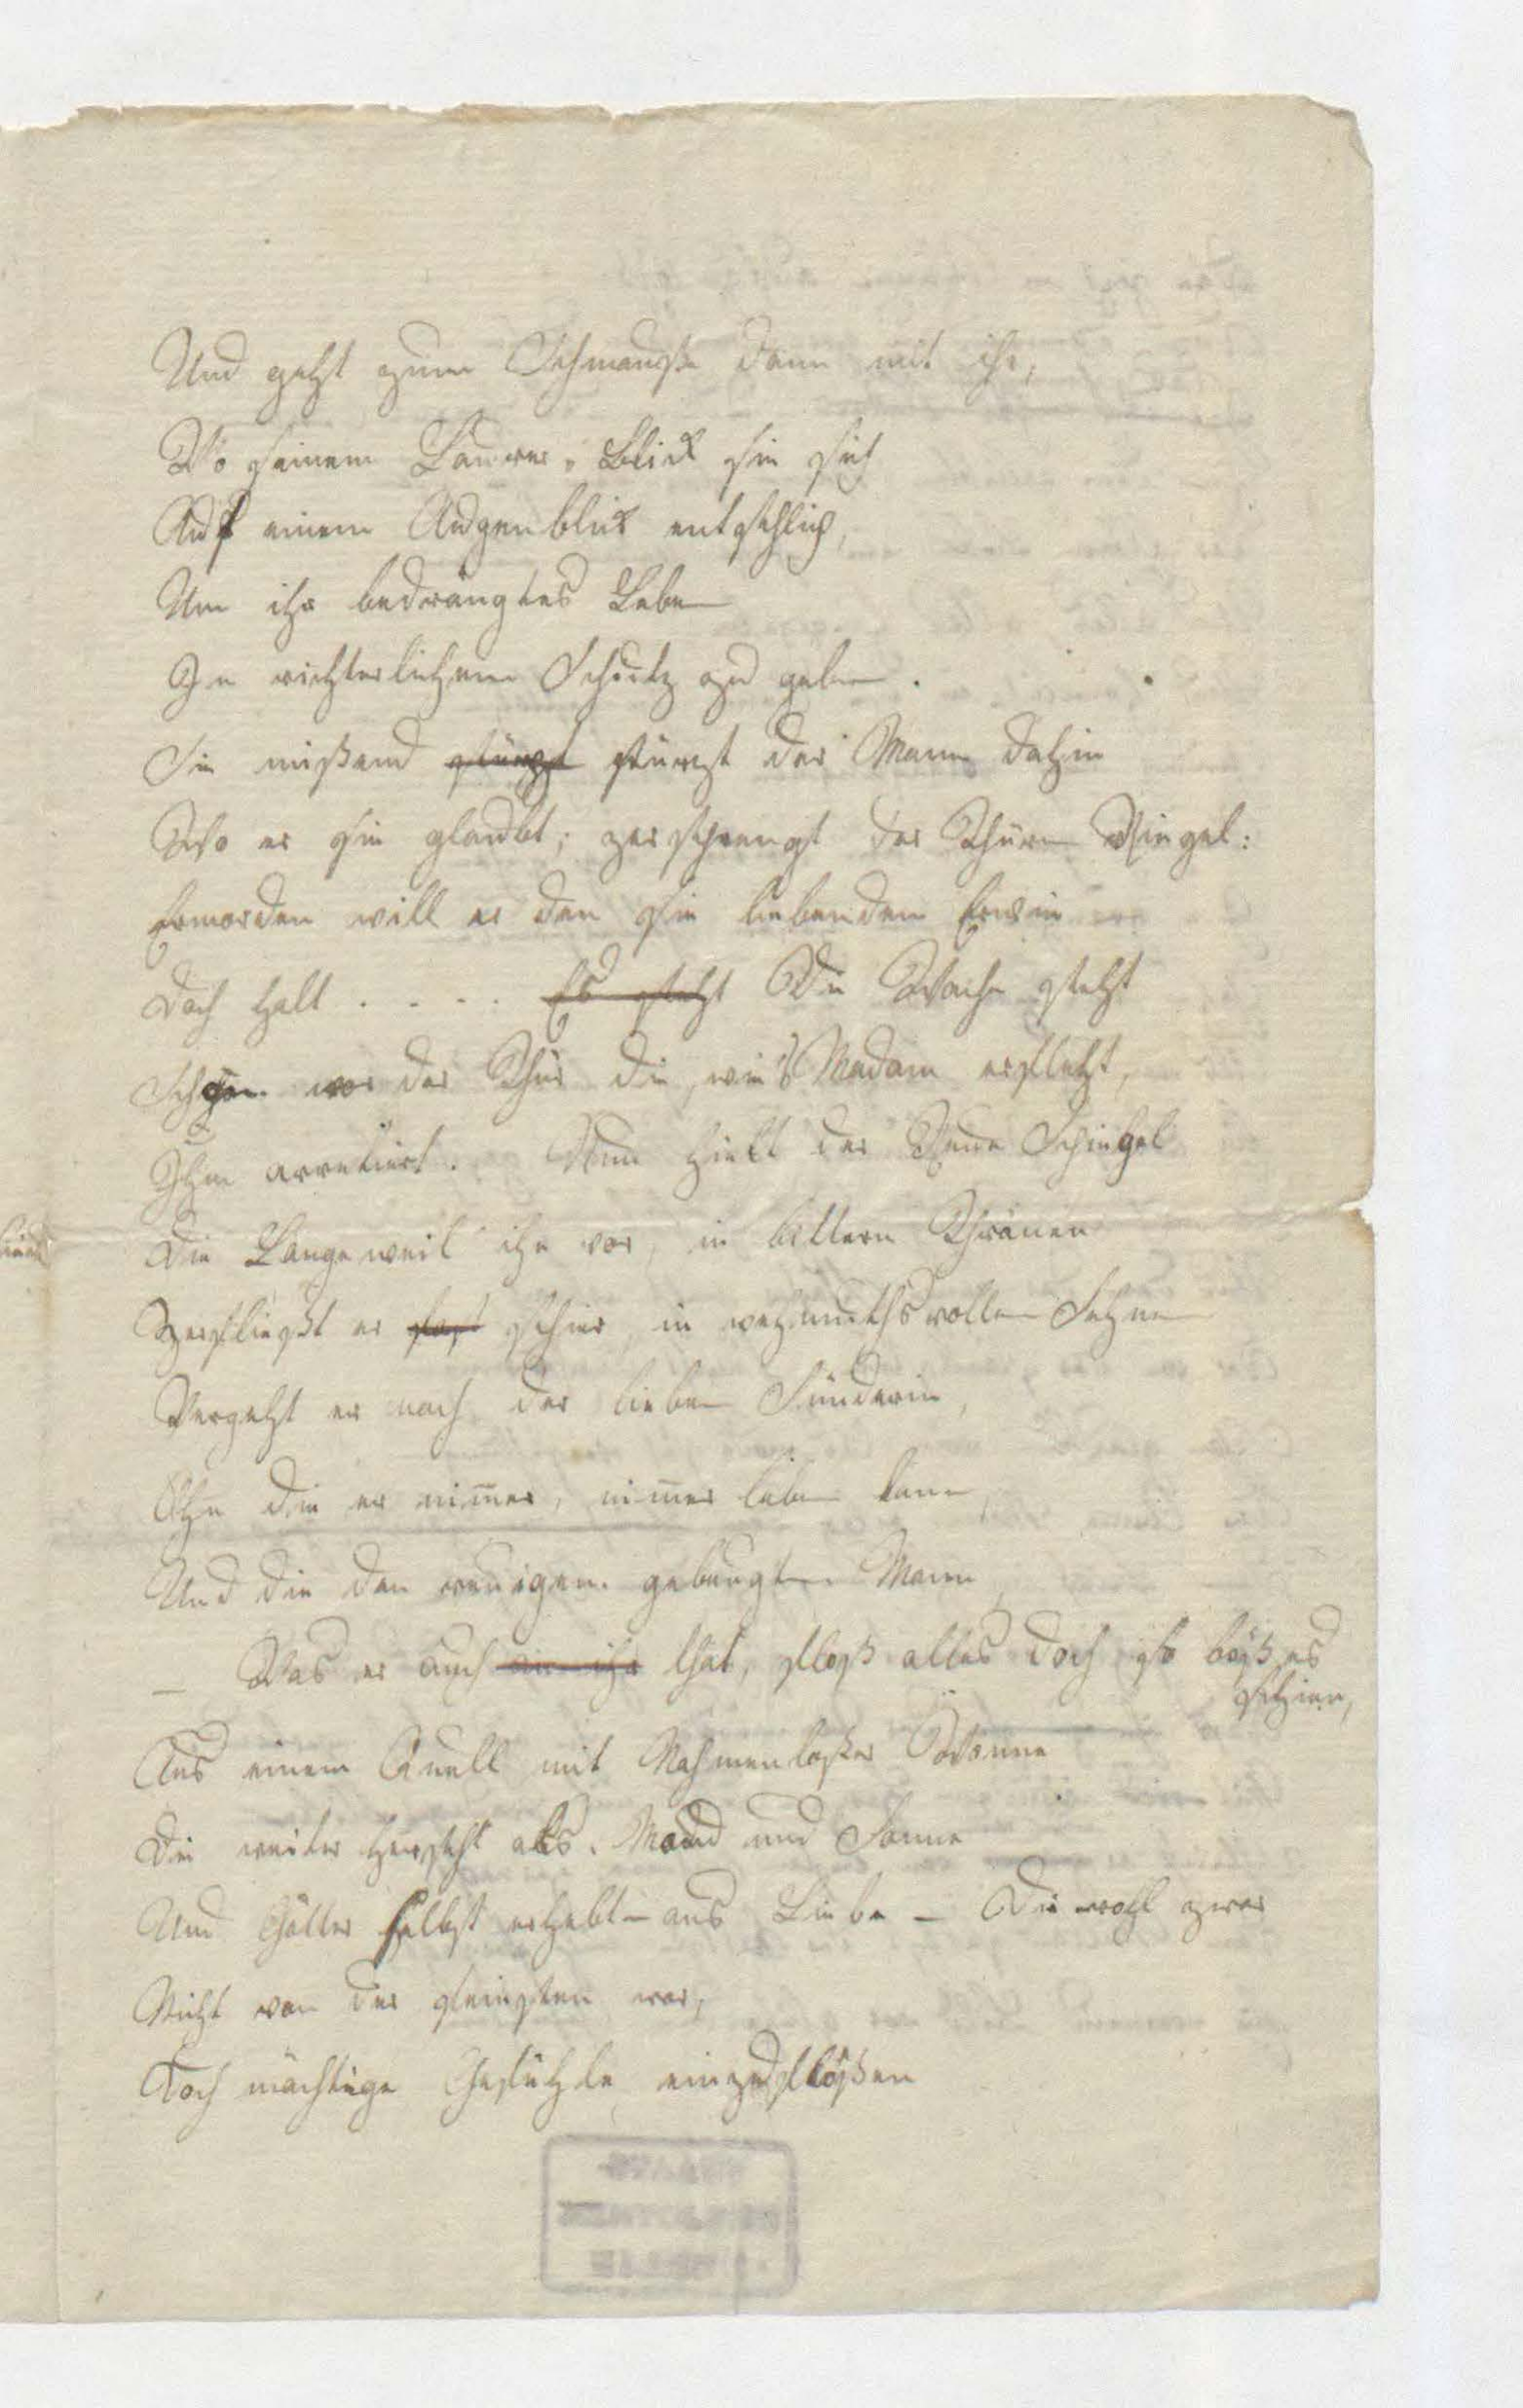 Und geht zum Schmauße dann mit ihr,
Wo seinem Laurer-Blick sie sich
Auf einem Augenblick entschlich,
Um ihr bedrängtes Leben
In richterlichem Schutz zu geben.
Sie mißend stürzt stürzt der Mann dahin
Wo er sie glaubt; zersprengt der Thüren Riegel:
Ermorden will er den sie liebenden Erwin
Doch halt . . . . Es steht Die Wache steht
Schon vor der Thür die, wie's Madam erfleht,
Ihm arretiert. Nun hielt der Reue Spiegel
Die Langeweil ihr vor, in bittern Thränen
Zerfließt er fast schier, in wehmuthsvollen Sehnen
Vergeht er nach der lieben Sünderin,
Ohn die er nimer, nimer leben kann,
Und die den reuigen gebeugten Mann
— Was er auch an ihr that, floß alles doch so böß es
schien,
Aus einem Quell mit Nahmenloßer Wonne
Die weiter herrscht als Mond und Sonne
Und Götter selbst erhebt – aus Liebe – Die wohl zwar
Nicht von der feinsten war,
Doch mächtige Gefühle einzuflößen